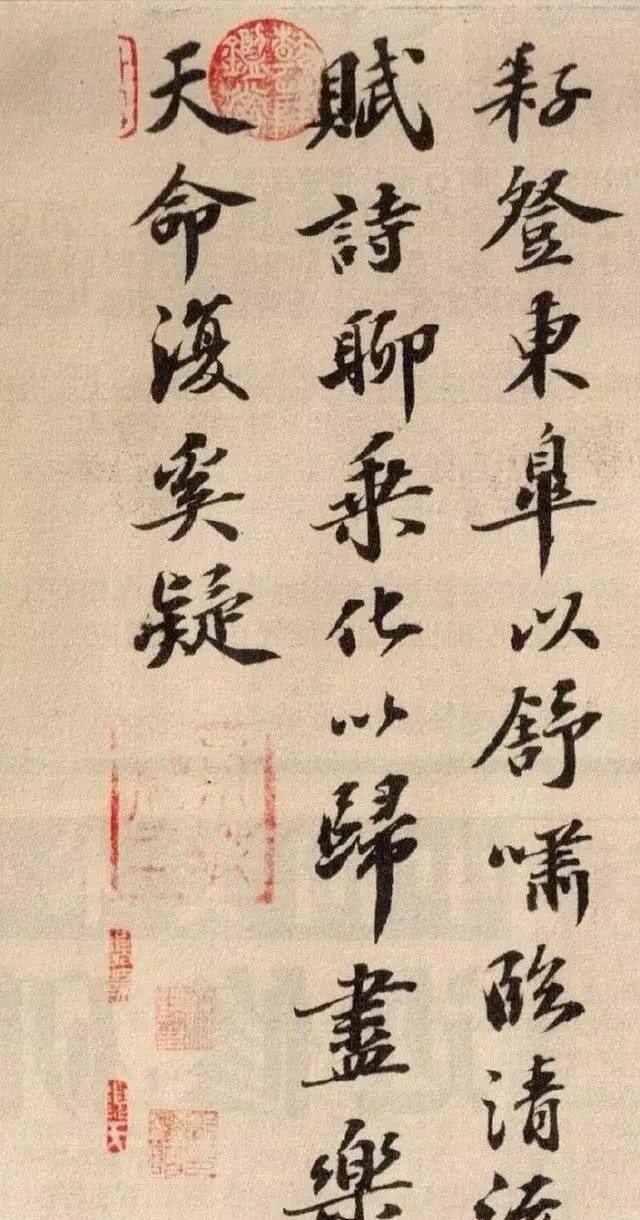 耔登東皐以舒嘯臨清流
賦詩聊乗化以歸盡樂
天命復奚疑